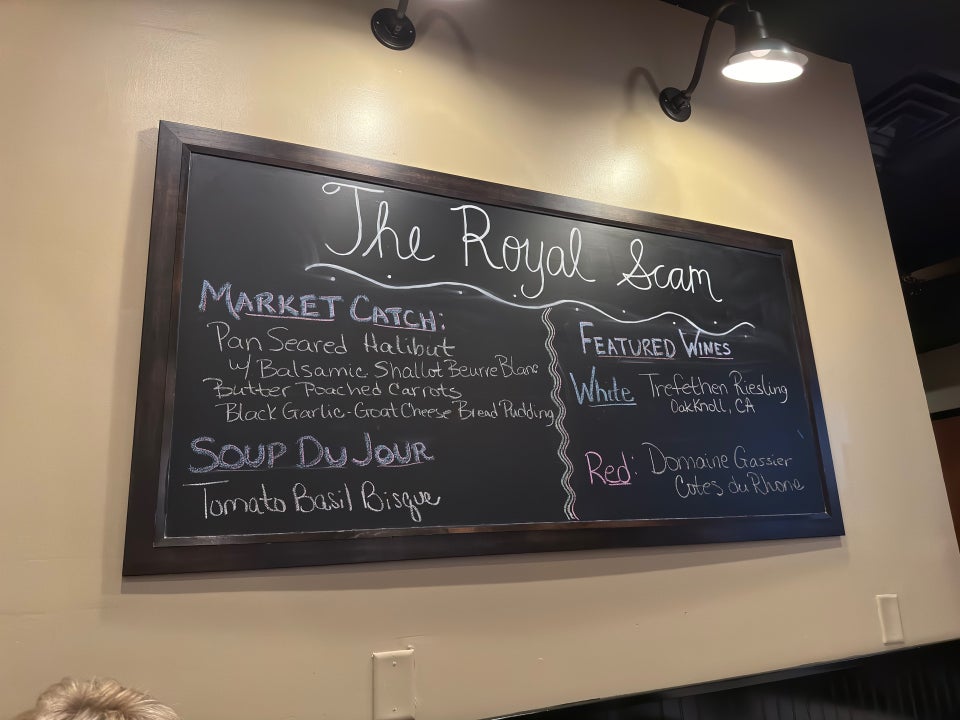 The Royal Scam
MARKET CATCH:
Pan Seared Halibut
w/ Balsamic Shallot Beurre Blanc
Butter Poached Carrots
Black Garlic-Goat Cheese Bread Pudding
SOUP DU JOUR
Tomato Basil Bisque
FEATURED WINES
White Trefethen Riesling
Oak Knoll, CA
Red: Domaine Gassier
Cotes du Rhone